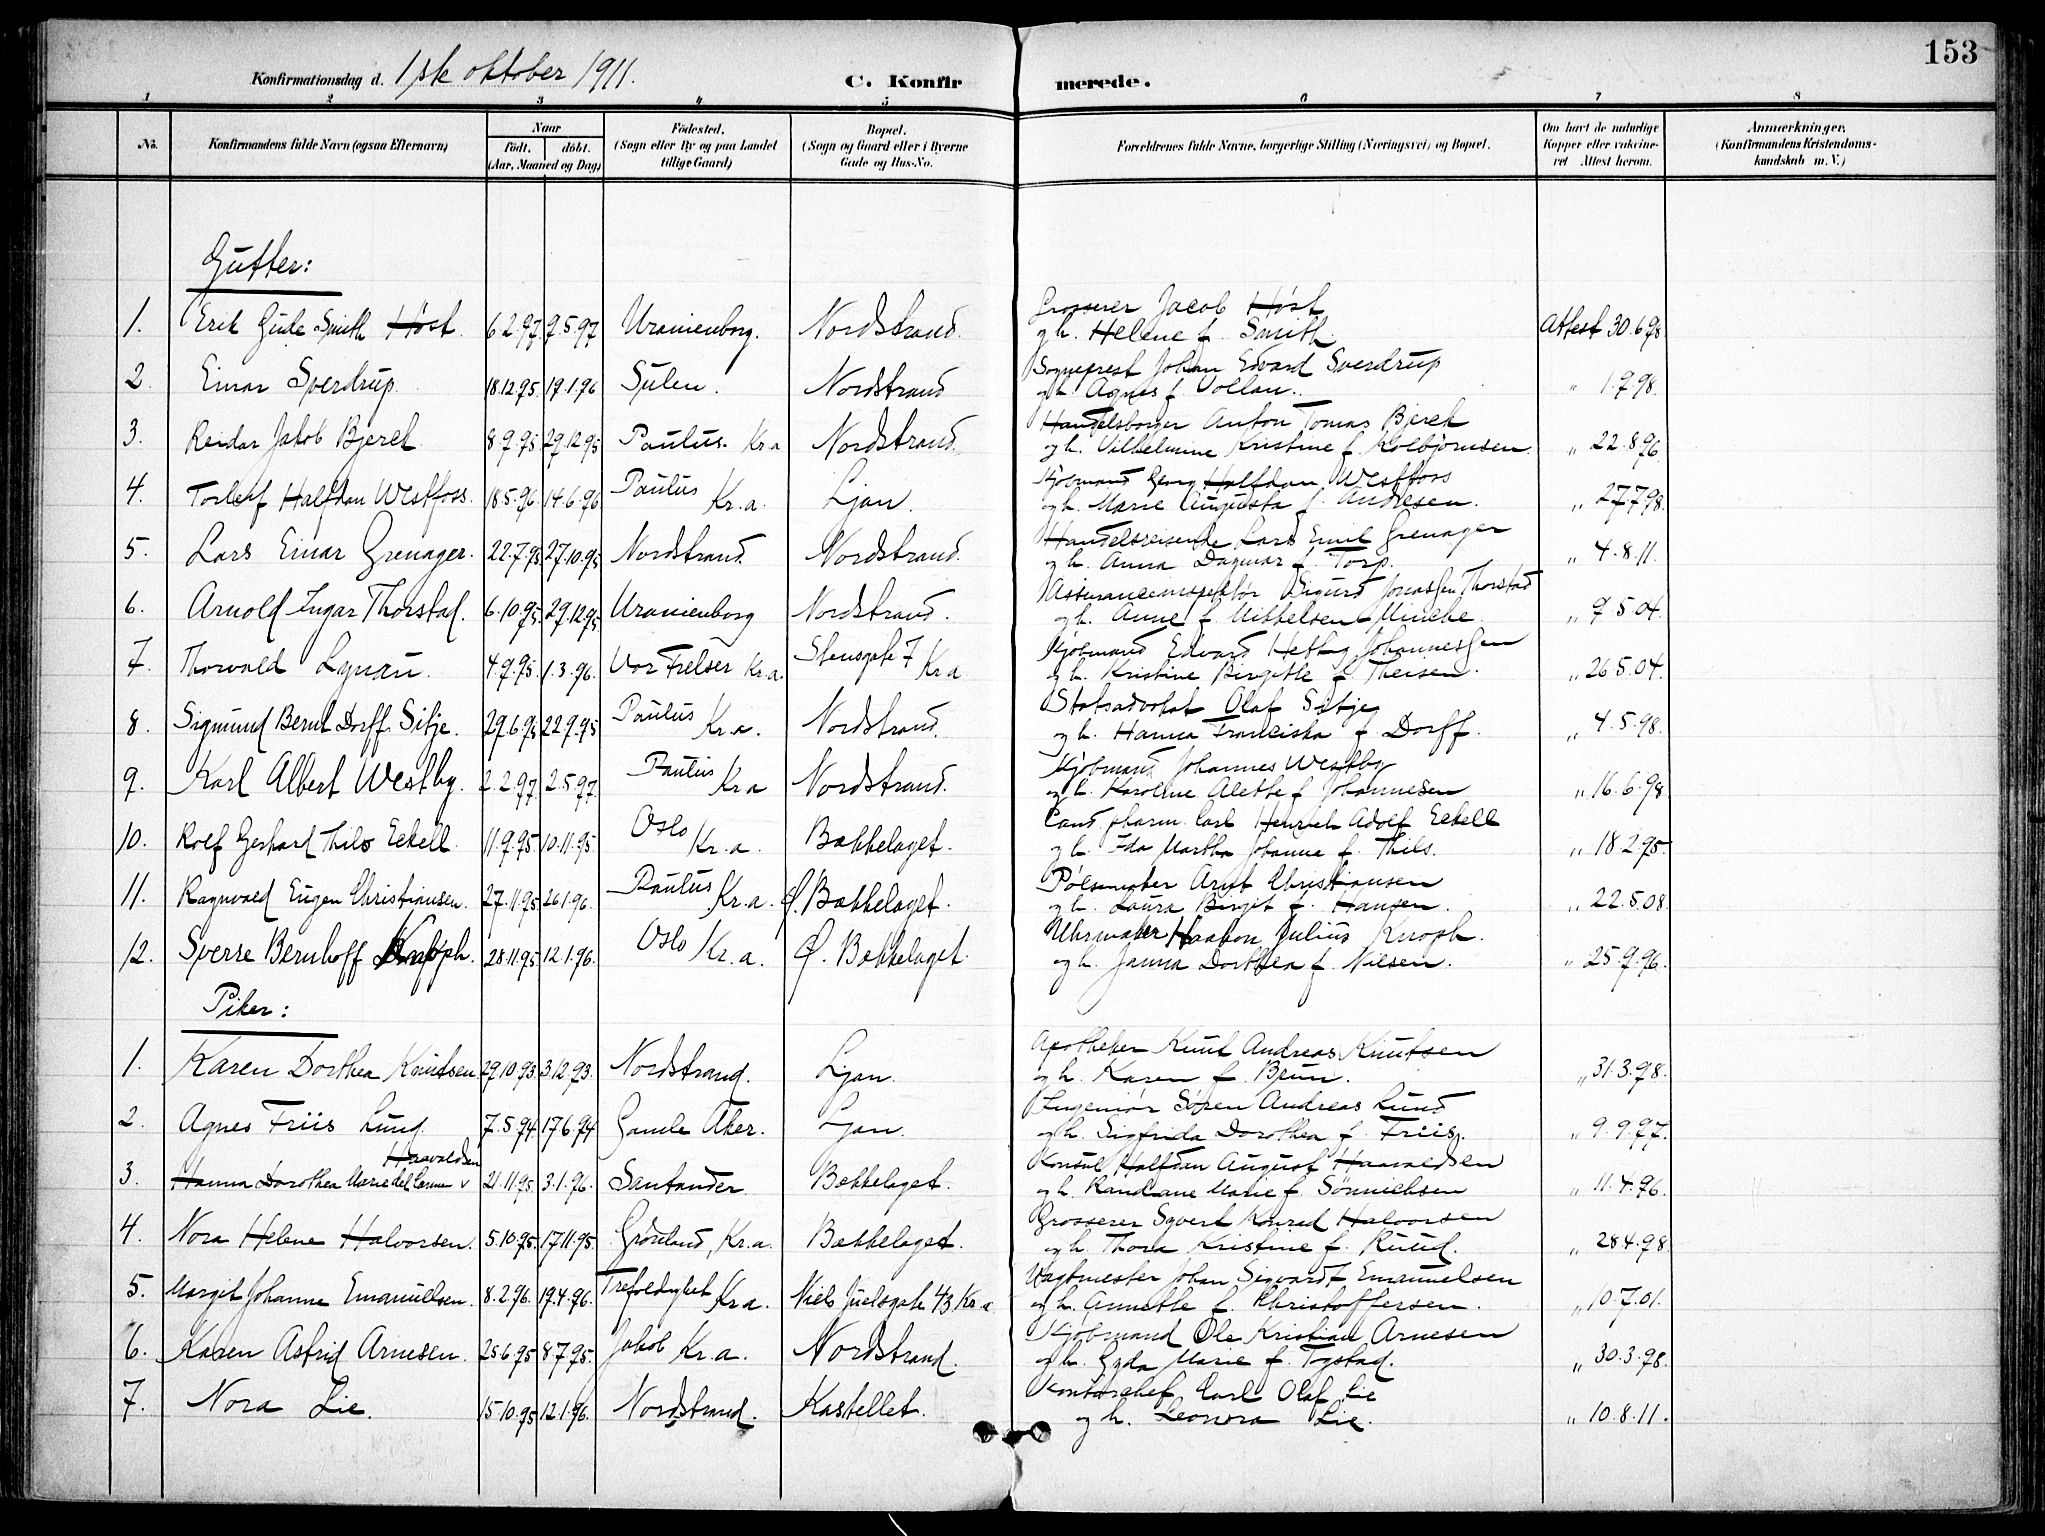 153
Konfirmationsdag d. 1ste oktober 1911.
C. Konfirmerede.
1 2 3 4 5 6 7 8
No. Konfirmandens fulde Navn (ogsaa Efternavn) Naar født. døbt. (Aar, Maaned og Dag) Fødested. (Sogn eller By og paa Landet tillige Gaard) Bopæl. (Sogn og Gaard eller i Byerne Gade og Hus-No. Forældrenes fulde Navne, borgerlige Stilling (Næringsvei) og Bopæl. Om havt de naturlige Kopper eller vakcineret Attest herom. Anmærkninger. (Konfirmandens Kristendomskundskab m. V.)
Gutter:
Grosserer Jacob Høst
1. Erik Gude Smith Høst. 6.2.97. 9.5.97 Uranienborg. Nordstrand. og h. Helene f. Smith. Attest 30.6.98
Sogneprest Johan Edvard Sverdrup
2. Einar Sverdrup. 18.12.95. 19.1.96 Sulen. Nordstrand og h. Agnes f. Vollan. " 1.9.98.
Handelsborger Anton Tomas Bjerck
3. Reidar Jakob Bjerck 8.9.95. 29.12.95 Paulus. Kr.a Nordstrand. og h. Vilhelmine Kristine f. Kolbjørnsen. " 22.8.96.
Kjøbmand Georg Halfdan Westfoss
4. Torleif Halfdan Westfoss. 18.5.96. 14.6.96 Paulus Kr.a. Ljan. og h. Marie Augusta f. Andresen. " 27.7.98.
Handelsreisende Lars Emil Grenager
5. Lars Einar Grenager. 22.7.95. 27.10.95 Nordstrand. Nordstrand. og h. Anna Dagmar f. Torp. " 4.8.11.
Assuranceinspektør Sigurd Jonassen Thorstad
6. Arnold Ingar Thorstad. 6.10.95. 29.12.95 Uranienborg Nordstrand. og h. Anne f. Mikkelsen Minche. " 9.5.04.
Kjøbmand Edvard Heftig Johannessen
7. Thorvald Lynau. 4.9.95. 1.3.96. Vor Frelser Kr.a. Stensgate 7 Kr.a og h. Kristine Birgitte f. Theisen. " 26.5.04.
Statsadvokat Olaf Sitje
8. Sigmund Bernt Dorff Sitje. 29.6.95 22.9.95 Paulus Kr.a. Nordstrand. og h. Hanna Franciska f. Dorff. " 4.5.98.
Kjøbmand Johannes Westby
9. Karl Albert Westby. 2.2.97. 2.5.97. Paulus Kr.a Nordstrand. og h. Karoline Alette f. Johannesen " 16.6.98
Cand. pharm. Carl Henrich Adolf Eckell
10. Rolf Gerhard Thilo Eckell. 11.9.95. 10.11.95. Oslo Kr.a. Bækkelaget. og h. Ida Martha Johanna f. Thilo. " 18.2.95.
Pølsemaker Arnt Christiansen
11. Ragnvald Eugen Christiansen. 27.11.95 26.1.96. Paulus Kr.a. Ø. Bækkelaget. og h. Laura Birgit f. Hansen. " 22.5.08.
Uhrmaker Haakon Julius Knoph.
12. Sverre Bernhoff Knoph. 28.11.95 12.1.96. Oslo Kr.a. Ø. Bækkelaget. og h. Janna Dorthea f. Nilsen. " 25.9.96.
Piker:
Apotheker Knut Andreas Knutsen
1. Karen Dorthea Knutsen 29.10.93. 3.12.93. Nordstrand. Ljan. og h. Karen f. Brun. " 31.3.98.
Ingeniør Søren Andreas Lund
2. Agnes Friis Lund. 7.5.94 17.6.94 Gamle Aker. Ljan. og h. Sigfrida Dorothea f. Friis. " 9.9.97.
Haavaldsen Konsul Halfdan August Haavaldsen
3. Hanna Dorothea Marie del Carmen v 21.11.95 3.1.96. Santander Bækkelaget. og h. Randiane Marie f. Sønnichsen " 11.4.96.
Grosserer Syvert Konrad Halvorsen
4. Nora Helene Halvorsen. 5.10.95. 17.11.95. Grønland, Kr.a. Bækkelaget. og h. Thora Kristine f. Ruud. " 28.4.98.
Vagtmester Johan Sigvardt Emanuelsen
5. Margit Johanne Emanuelsen. 8.2.96. 19.4.96. Trefoldighet Kr.a. Niels Juelsgate 43 Kr.a og h. Annette f. Christoffersen. " 10.7.01.
Kjøbmand Ole Kristian Arnesen
6. Karen Astrid Arnesen. 25.6.95 8.7.95. Jakob Kr.a. Nordstrand. og h. Gyda Marie f. Togstad. " 30.3.98.
Kontorchef Carl Olaf Lie
7. Nora Lie. 15.10.95 12.1.96. Nordstrand. Kastellet. og h. Leonora Lie. " 10.8.11.